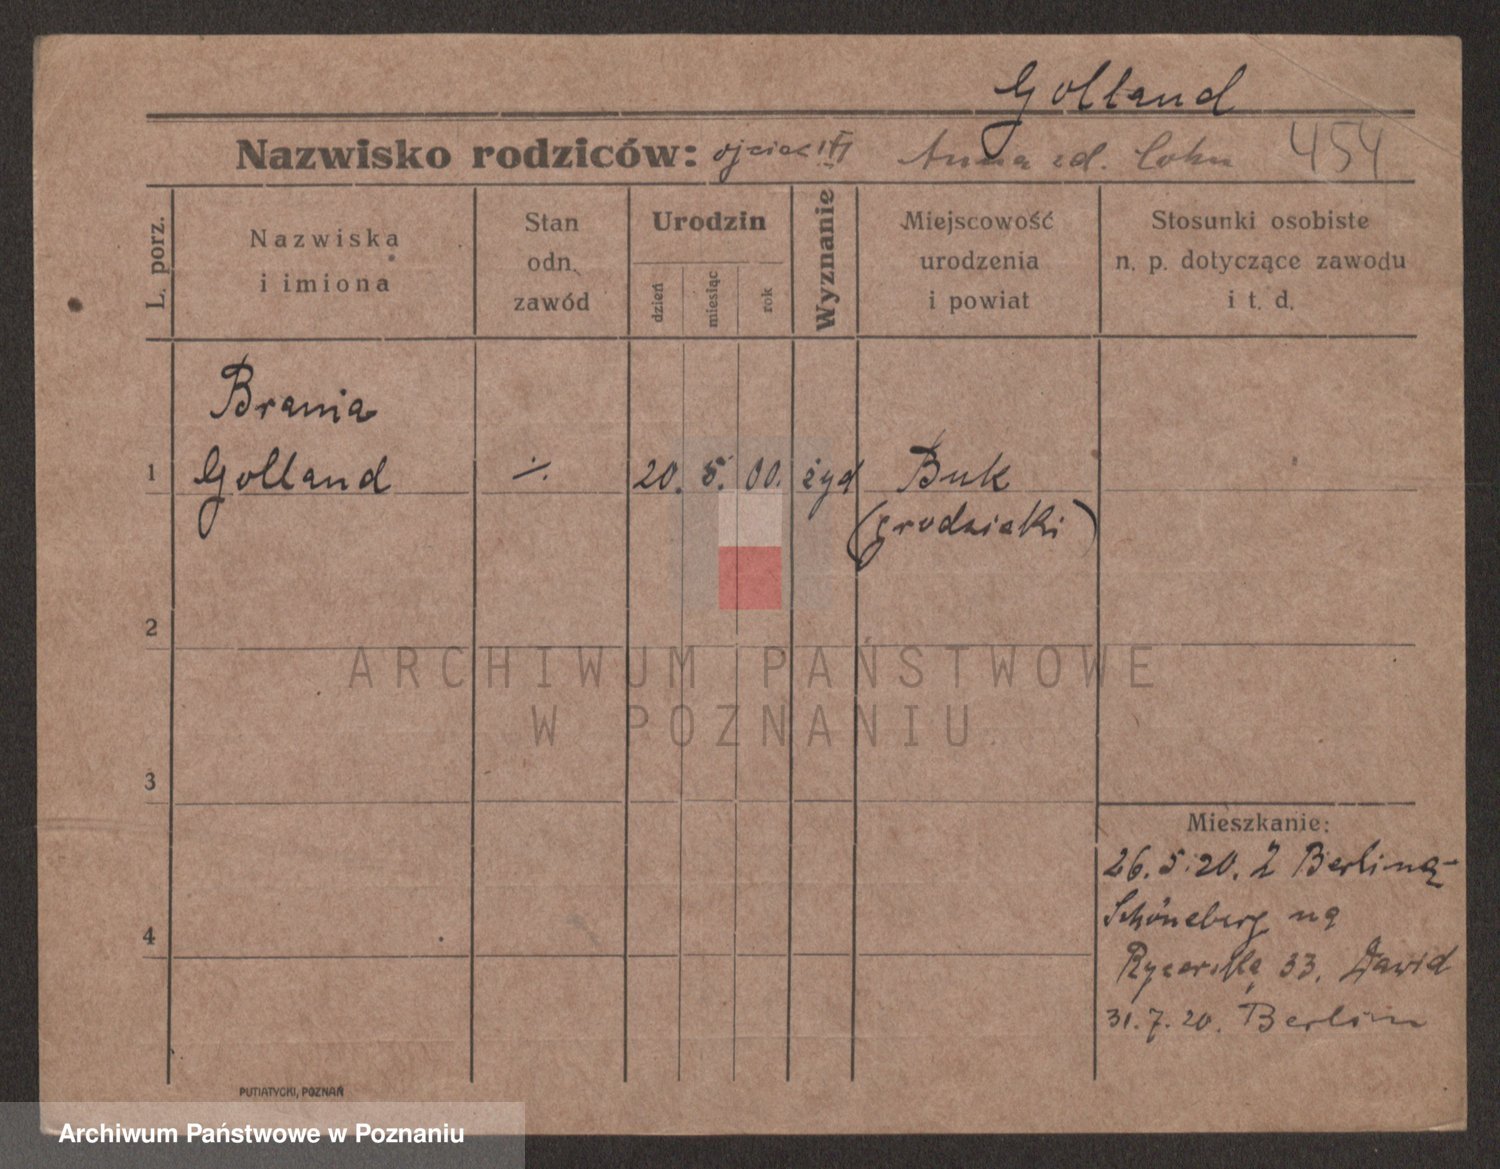 Golland
Nazwisko rodziców: ojciec Anna zd. Cohn 454
L. porz.
Nazwiska
i imiona
Stan
odn.
zawód
Urodzin
dzień
miesiąc
rok
Wyznanie
Miejscowość
urodzenia
i powiat
Stosunki osobiste
n. p. dotyczące zawodu
i t. d.
Brania
1 Golland ·/. 20. 5. 00. żyd Buk
(grodziski)
2
ARCHIWUM PAŃSTWOWE
W POZNANIU
3
Mieszkanie:
26.5.20. Z Berlina-
Schöneberg na
4
Rycerską 33. Dawid
31.7.20. Berlin
PUTIATYCKI, POZNAŃ
Archiwum Państwowe w Poznaniu